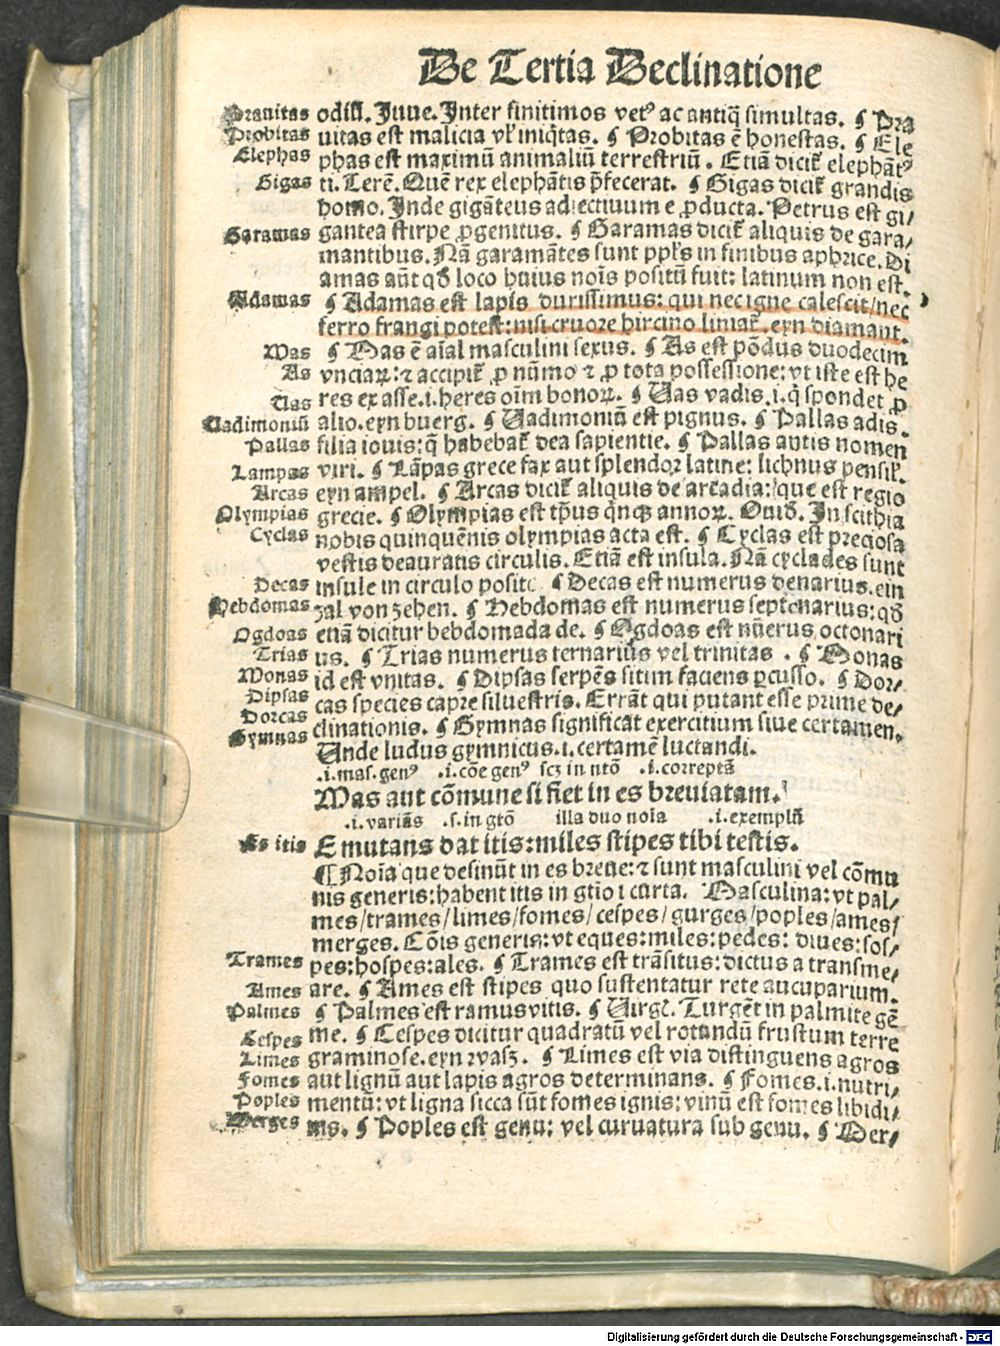 De Tertia Declinatione
Prauitas odiū. Juue. Inter finitimos vetꝰ ac antiq̄ simultas. ¶ Pra
Probitas uitas est malicia vl' iniq̇tas. ¶ Probitas ē honestas. ¶ Ele
Elephas phas est maximū animaliū terrestriū. Etiā dicit̄ elephātꝰ
Gigas ti. Terē. Quē rex elephātis p̄fecerat. ¶ Gigas dicit̄ grandis
homo. Inde gigāteus adiectiuum e ꝓducta. Petrus est gi/
Garamas gantea stirpe ꝓgenitus. ¶ Garamas dicit̄ aliquis de gara/
mantibus. Nā garamātes sunt ppl's in finibus aphrice. Di
amas aūt qđ loco huius nois positū fuit: latinum non est.
Adamas ¶ Adamas est lapis durissimus: qui nec igne calescit/nec
ferro frangi potest: nisi cruore hircino liniat̄. eyn diamant.
Mas ¶ Mas ē aīal masculini sexus. ¶ As est pōdus duodecim
As vnciaꝝ: ⁊ accipit̄ ꝓ nūmo ⁊ ꝓ tota possessione: vt iste est he
Uas res ex asse .i. heres oīm bonoꝝ. ¶ Uas vadis .i. q̇ spondet ꝓ
Uadimoniū alio. eyn buerg. ¶ Uadimoniū est pignus. ¶ Pallas adis.
Pallas filia iouis: q̄ habebat̄ dea sapientie. ¶ Pallas antis nomen
Lampas viri. ¶ Lāpas grece fax aut splendor latine: lichnus pensil'.
Arcas eyn ampel. ¶ Arcas dicit̄ aliquis de arcadia: que est regio
Olympias grecie. ¶ Olympias est tp̄us q̇nqꝫ annoꝝ. Ouid. In scithia
Cyclas nobis quinquēnis olympias acta est. ¶ Cyclas est preciosa
vestis deauratis circulis. Etiā est insula. Nā cyclades sunt
Decas insule in circulo posite. ¶ Decas est numerus denarius. ein
Hebdomas zal von zehen. ¶ Hebdomas est numerus septenarius: qđ
Ogdoas etiā dicitur hebdomada de. ¶ Ogdoas est nūerus octonari
Trias us. ¶ Trias numerus ternarius vel trinitas. ¶ Monas
Monas id est vnitas. ¶ Dipsas serpēs sitim faciens ꝑcusso. ¶ Dor/
Dipsas cas species capre siluestris. Errāt qui putant esse prime de/
Dorcas
Gymnas clinationis. ¶ Gymnas significat exercitium siue certamen.
Unde ludus gymnicus .i. certamē luctandi.
.i. mas. genꝰ .i. cōe genꝰ scꝫ in ntō .i. correptā
Mas aut cōmune si fiet in es breuiatam.
.i. variās .s. in gtō illa duo noīa .i. exemplū
Es itis E mutans dat itis: miles stipes tibi testis.
¶ Noīa que desinūt in es breue: ⁊ sunt masculini vel cōmu
nis generis: habent itis in gtio i curta. Masculina: vt pal/
mes/trames/limes/fomes/cespes/gurges/poples/ames/
merges. Cōis generis: vt eques: miles: pedes: diues: sos/
Trames pes: hospes: ales. ¶ Trames est trāsitus: dictus a transme/
Ames are. ¶ Ames est stipes quo sustentatur rete aucuparium.
Palmes ¶ Palmes est ramus vitis. ¶ Virgil. Turgēt in palmite gē
Cespes me. ¶ Cespes dicitur quadratū vel rotundū frustum terre
Limes graminose. eyn wasz. ¶ Limes est via distinguens agros
Fomes aut lignū aut lapis agros determinans. ¶ Fomes .i. nutri/
Poples mentū: vt ligna sicca sūt fomes ignis: vinū est fomes libidi/
Merges nis. ¶ Poples est genu: vel curuatura sub genu. ¶ Mer/
Digitalisierung gefördert durch die Deutsche Forschungsgemeinschaft - DFG